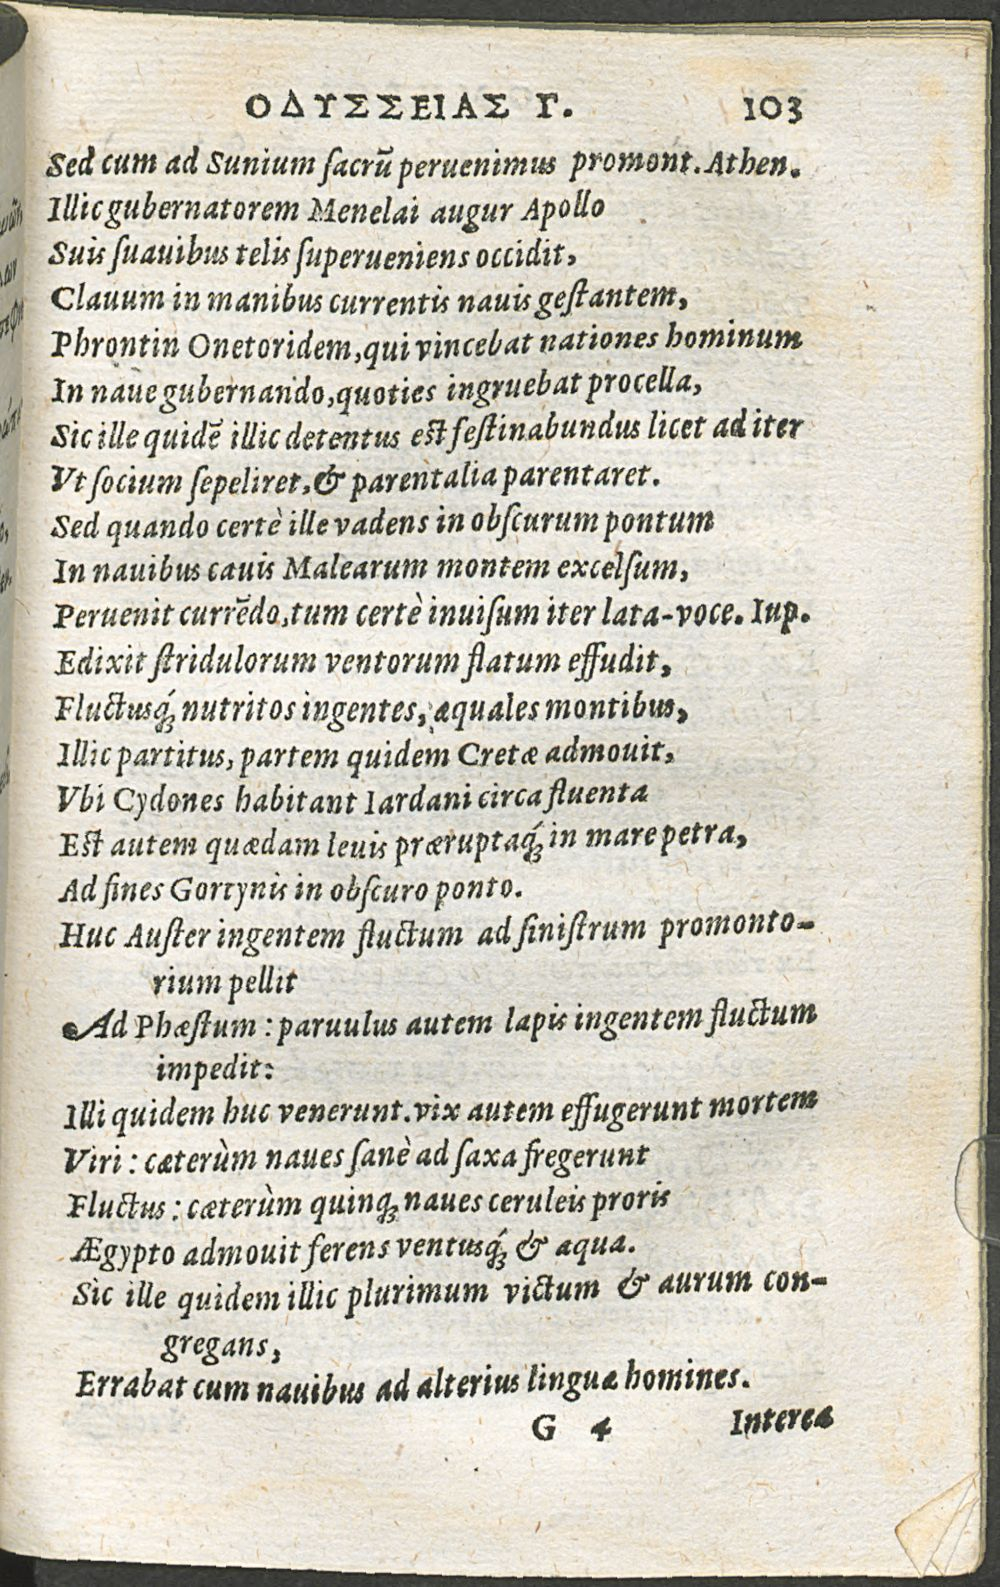 ΟΔΥΣΣΕΙΑΣ Γ. 103
Sed cum ad Sunium ſacrũ peruenimus promont. Athen.
Illic gubernatorem Menelai augur Apollo
Suis ſuauibus telis ſuperueniens occidit,
Clauum in manibus currentis nauis geſtantem,
Phrontin Onetoridem, qui vincebat nationes hominum
In naue gubernando, quoties ingruebat procella,
Sic ille quidẽ illic detentus eſt feſtinabundus licet ad iter
Vt ſocium ſepeliret, & parentalia parentaret.
Sed quando certè ille vadens in obſcurum pontum
In nauibus cauis Malearum montem excelſum,
Peruenit currẽdo, tum certè inuiſum iter lata-voce. Iup.
Edixit ſtridulorum ventorum flatum effudit,
Fluctusq́; nutritos ingentes, æquales montibus,
Illic partitus, partem quidem Cretæ admouit,
Vbi Cydones habitant Iardani circa fluenta
Eſt autem quædam leuis præruptaq́; in mare petra,
Ad fines Gortynis in obſcuro ponto.
Huc Auſter ingentem fluctum ad ſiniſtrum promonto-
rium pellit
Ad Phæſtum: paruulus autem lapis ingentem fluctum
impedit:
Illi quidem huc venerunt. vix autem effugerunt mortem
Viri: cæterùm naues ſanè ad ſaxa fregerunt
Fluctus: cæterùm quinq; naues ceruleis proris
Ægypto admouit ferens ventusq́; & aqua.
Sic ille quidem illic plurimum victum & aurum con-
gregans,
Errabat cum nauibus ad alterius linguæ homines.
G 4 Interea